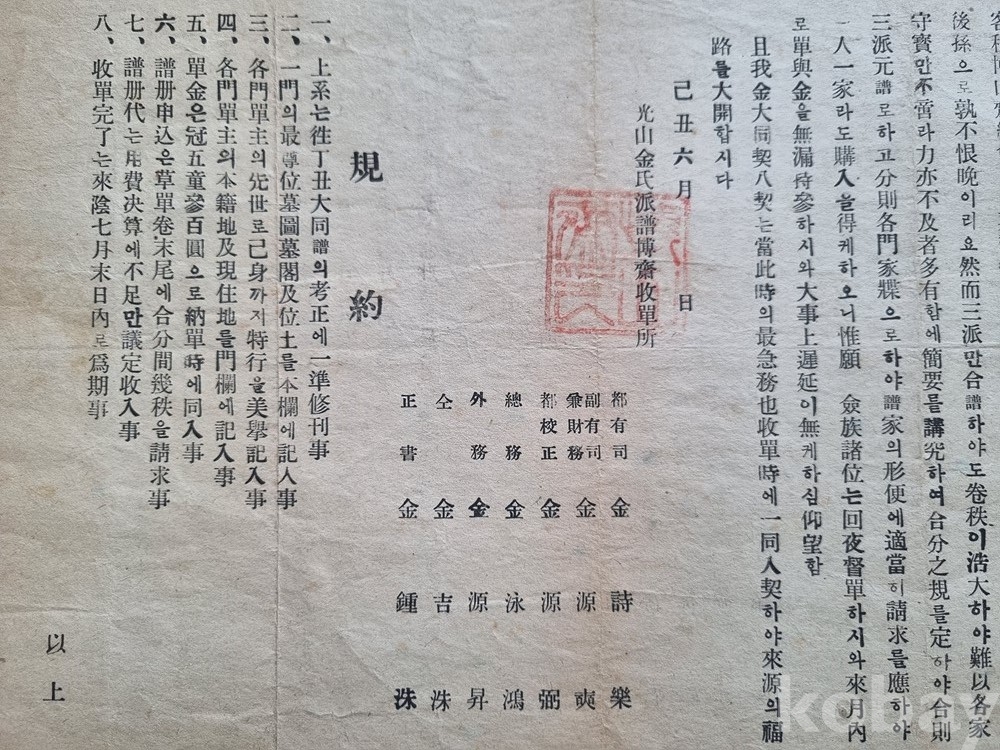 後孫으로孰不恨晩이리요然而三派만合譜하야도卷秩이浩大하야難以各家
守寶만不啻라力亦不及者多有함에簡要를講究하여合分之規를定하야合則
三派元譜로하고分則各門家牒으로하야譜家의形便에適當히請求를應하야
一人一家라도購入을得케하오니惟願 僉族諸位는回夜督單하시와來月內
로單與金을無漏待參하시와大事上遲延이無케하심仰望함
且我金大同契八契는當此時의最急務也收單時에一同入契하야來源의福
路를大開합시다
己丑六月 日
光山金氏派譜博齋收單所
都有司 金詩樂
副有司兼財務 金源奭
都校正 金源弼
總務 金泳鴻
外務 金源昇
仝 金吉洙
正書 金鍾洙
規約
一、上系는徃丁丑大同譜의考正에一準修刊事
二、一門의最尊位墓圖墓閣及位土를本欄에記入事
三、各門單主의先世로己身까지特行을美擧記入事
四、各門單主의本籍地及現住地를門欄에記入事
五、單金은冠五童參百圓으로納單時에同入事
六、譜册申込은草單卷末尾에合分間幾秩을請求事
七、譜册代는用費決算에不足만議定收入事
八、收單完了는來陰七月末日內로爲期事
以上
kobay